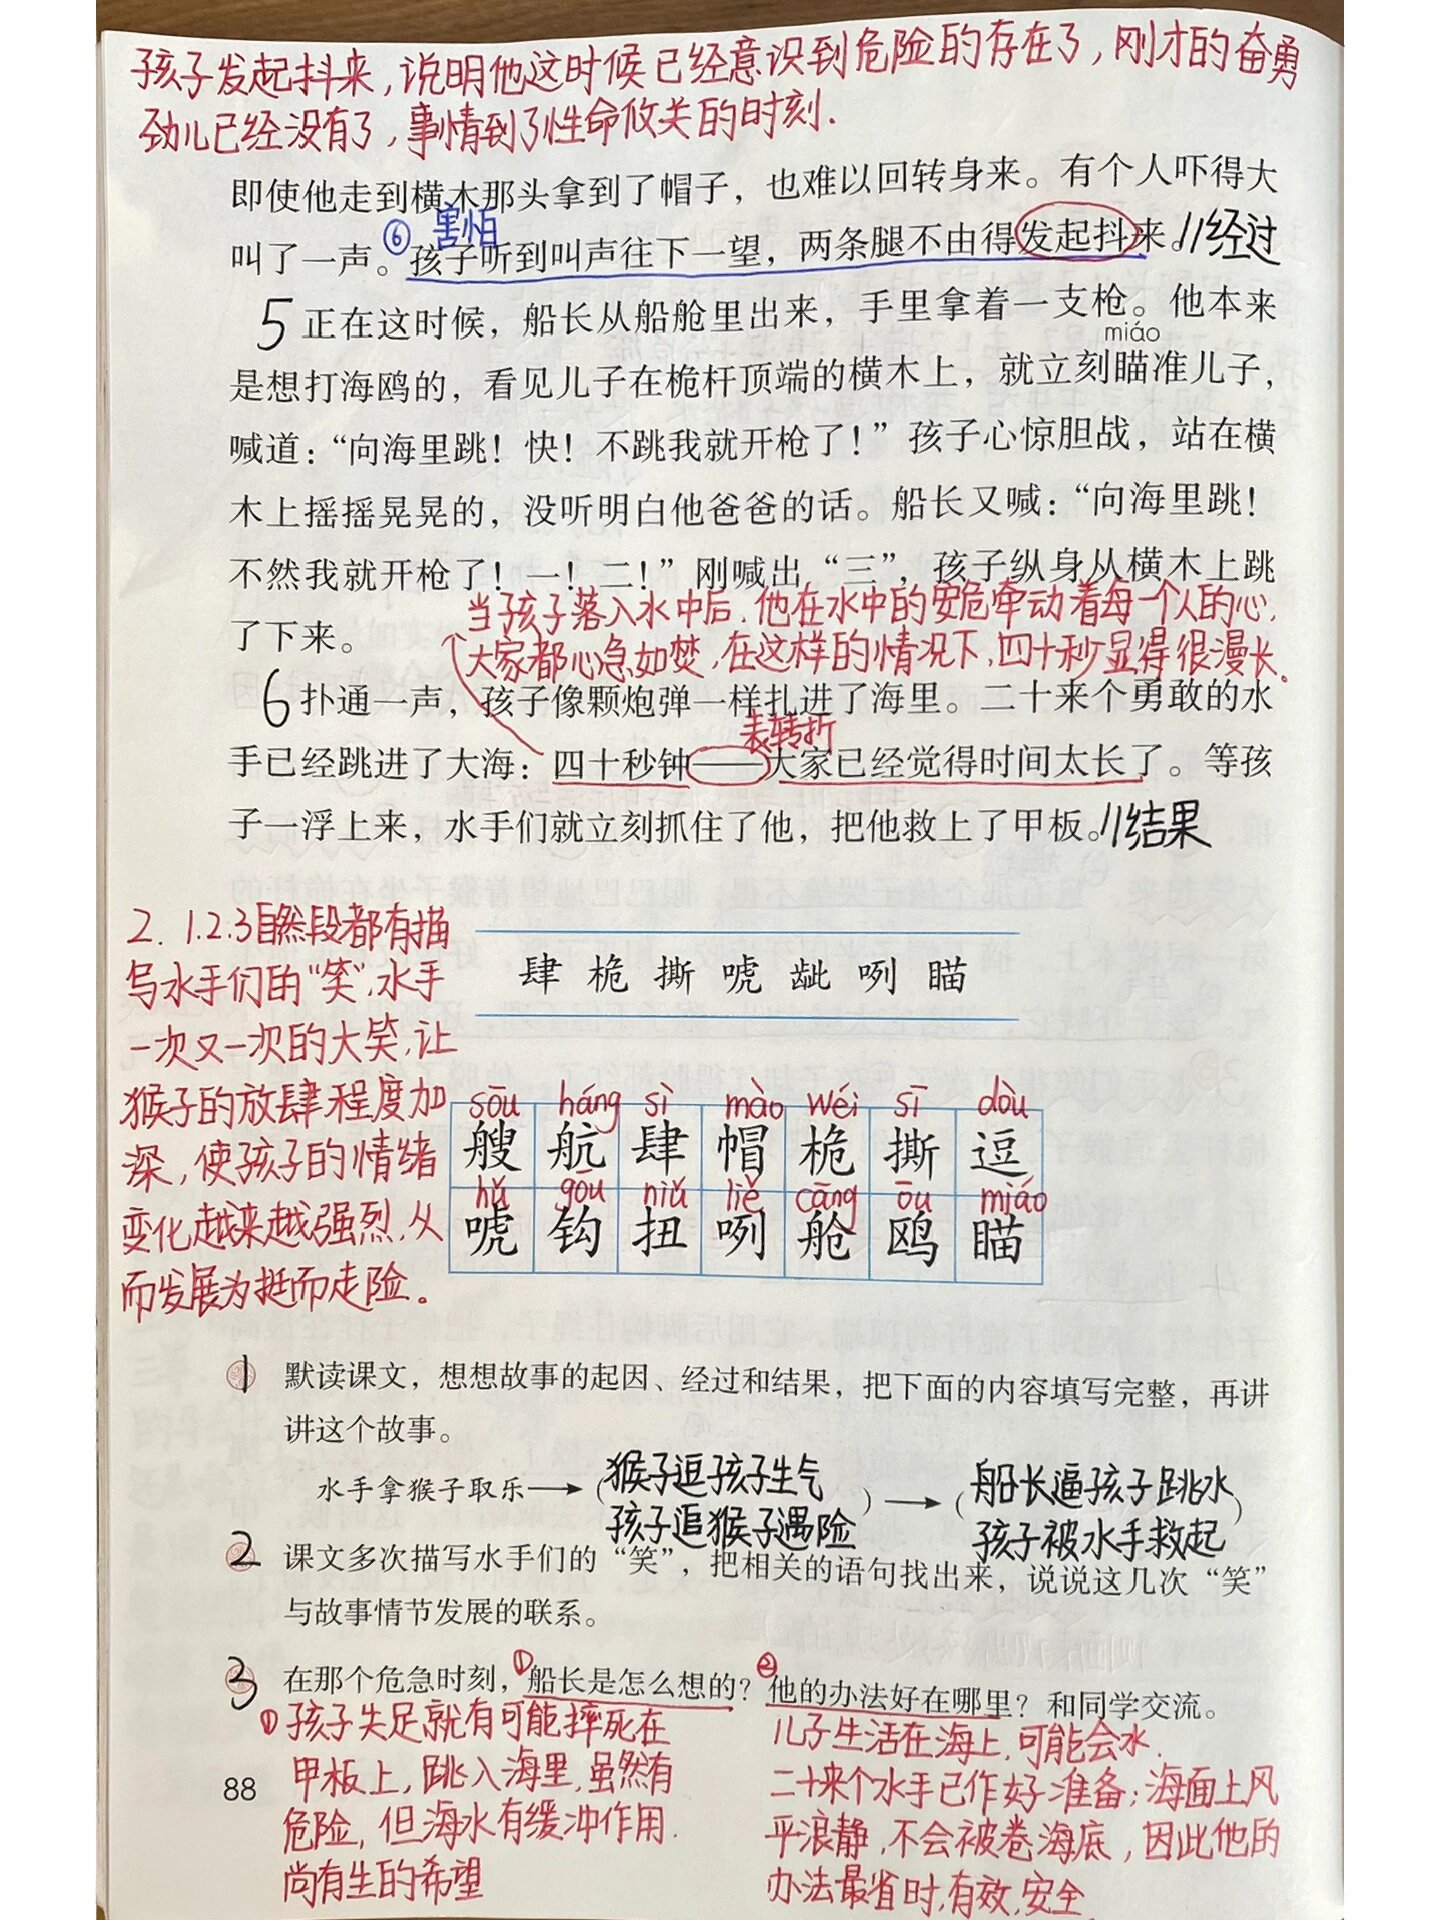 孩子发起抖来,说明他这时候已经意识到危险的存在了,刚才的奋勇
劲儿已经没有了,事情到了性命攸关的时刻.
即使他走到横木那头拿到了帽子，也难以回转身来。有个人吓得大
⑥ 害怕
叫了一声。孩子听到叫声往下一望，两条腿不由得发起抖来。//经过
5 正在这时候，船长从船舱里出来，手里拿着一支枪。他本来
miáo
是想打海鸥的，看见儿子在桅杆顶端的横木上，就立刻瞄准儿子，
喊道：“向海里跳！快！不跳我就开枪了！”孩子心惊胆战，站在横
木上摇摇晃晃的，没听明白他爸爸的话。船长又喊：“向海里跳！
不然我就开枪了！一！二！”刚喊出“三”，孩子纵身从横木上跳
当孩子落入水中后,他在水中的安危牵动着每一个人的心,
了下来。
大家都心急如焚,在这样的情况下,四十秒显得很漫长.
6 扑通一声，孩子像颗炮弹一样扎进了海里。二十来个勇敢的水
表转折
手已经跳进了大海：四十秒钟——大家已经觉得时间太长了。等孩
子一浮上来，水手们就立刻抓住了他，把他救上了甲板。//结果
2. 1.2.3自然段都有描
写水手们的“笑”,水手
一次又一次的大笑,让
猴子的放肆程度加
深,使孩子的情绪
变化越来越强烈,从
而发展为挺而走险。
肆 桅 撕 唬 龇 咧 瞄
sōu háng sì mào wéi sī dòu
艘 航 肆 帽 桅 撕 逗
hǔ gōu niǔ liě cāng ōu miáo
唬 钩 扭 咧 舱 鸥 瞄
1 默读课文，想想故事的起因、经过和结果，把下面的内容填写完整，再讲
讲这个故事。
水手拿猴子取乐→(猴子逗孩子生气 孩子追猴子遇险)→(船长逼孩子跳水 孩子被水手救起)
2 课文多次描写水手们的“笑”，把相关的语句找出来，说说这几次“笑”
与故事情节发展的联系。
3 在那个危急时刻，①船长是怎么想的？②他的办法好在哪里？和同学交流。
①孩子失足就有可能摔死在
甲板上,跳入海里,虽然有
危险,但海水有缓冲作用.
尚有生的希望
儿子生活在海上,可能会水.
二十来个水手已作好准备;海面上风
平浪静,不会被卷海底,因此他的
办法最省时,有效,安全
88